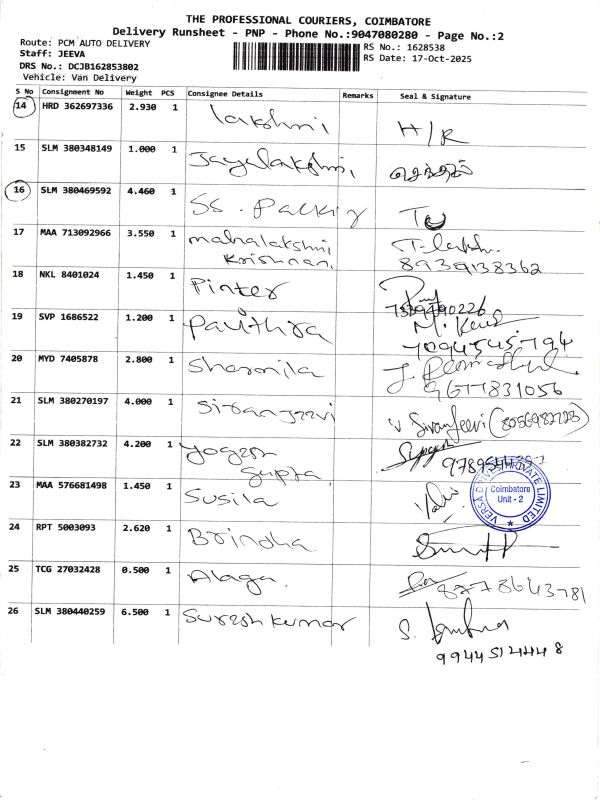 THE PROFESSIONAL COURIERS, COIMBATORE
Delivery Runsheet - PNP - Phone No.:9047080280 - Page No.:2
Route: PCM AUTO DELIVERY
Staff: JEEVA
DRS No.: DCJB162853802
Vehicle: Van Delivery
RS No.: 1628538
RS Date: 17-Oct-2025
S No Consignment No Weight PCS Consignee Details Remarks Seal & Signature
14 HRD 362697336 2.930 1 lakshmi H/R
15 SLM 380348149 1.000 1 Jayalakshmi,
16 SLM 380469592 4.460 1 SS. Packiy
17 MAA 713092966 3.550 1 mahalakshmi
Krishnan,
8939138362
18 NKL 8401024 1.450 1 Pinter
19 SVP 1686522 1.200 1 Pavithra
7094545794
20 MYD 7405878 2.800 1 Sharmila
9677831056
21 SLM 380270197 4.000 1 Siranjeevi (8056982728)
22 SLM 380382732 4.200 1 Yogesh
Gupta
23 MAA 576681498 1.450 1 Susila
Coimbatore
Unit - 2
PRIVATE LIMITED
24 RPT 5003093 2.620 1 Brindha
25 TCG 27032428 0.500 1 Alaga. 8778643781
26 SLM 380440259 6.500 1 Suresh kumar
9944514448